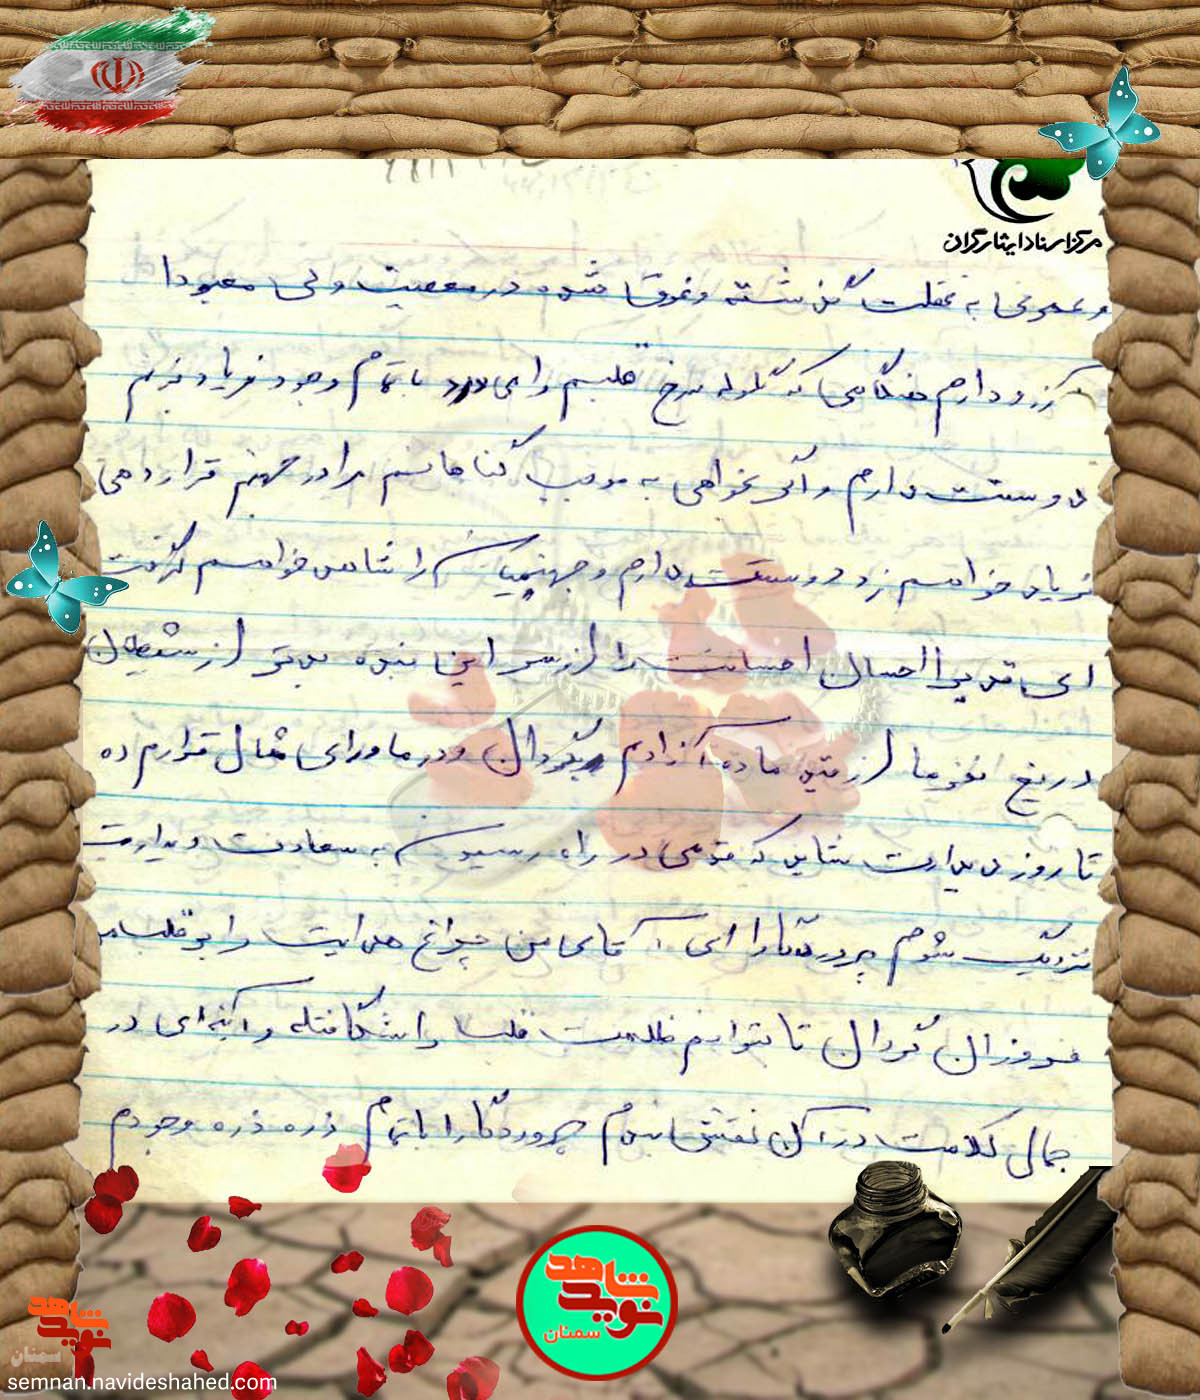 مرکز اسناد ایثارگران
و عمری به غفلت گذشته و غرق شده در معصیت ولی معبودا
آرزو دارم هنگامی که گلوله سرخ قلبم را می درد با تمام وجود فریاد بزنم
دوستت دارم و اگر بخواهی به موجب گناهانم مرا در جهنم قرار دهی
فریاد خواهم زد دوستت دارم و جهنمیان را شاهد خواهم گرفت
ای قدیم الاحسان احسانت را از سر این بنده بدتر از شیطان
دریغ مفرما از قید ماده آزادم بگردان و در ماورای خیال قرارم ده
تا روز دیدارت شاید که قدمی در راه رسیدن به سعادت دیدارت
نزدیک شوم پروردگارا ای آقای من چراغ هدایت را بر قلبم
فروزان گردان تا بتوانم ظلمت قلب را شکافته و آینه‌ای در
جمال کلامت در آن نقش بندم پروردگارا با تمام ذره ذره وجودم
نوید شاهد
سمنان
نوید شاهد
سمنان
semnan.navideshahed.com